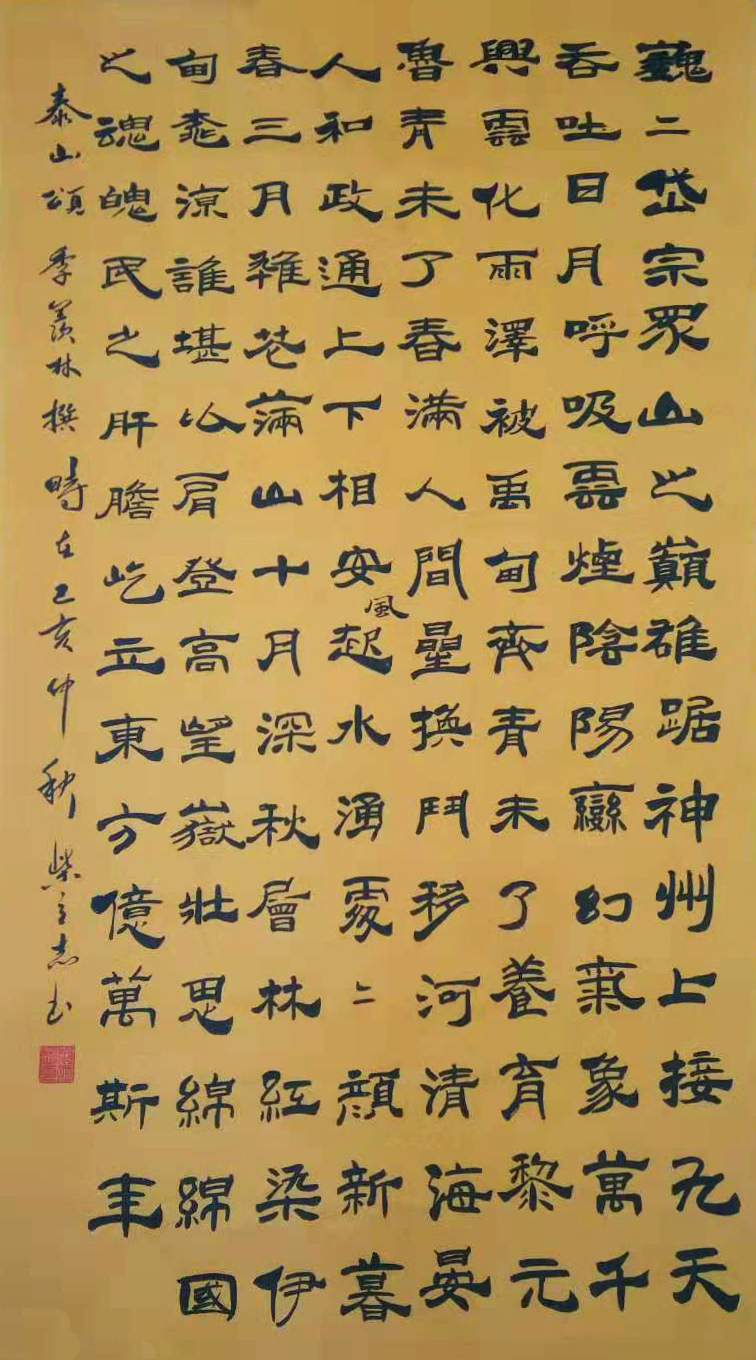 巍二岱宗眾山之巔雄踞神州上接九天
吞吐日月呼吸雲煙陰陽變幻氣象萬千
興雲化雨澤被禹甸齊青未了養育黎元
魯青未了春滿人間星換鬥移河清海晏
人和政通上下相安風起水湧處二顏新暮
春三月雜花滿山十月深秋層林紅染伊
甸桃源誰堪比肩登高望嶽壯思綿綿國
之魂魄民之肝膽屹立東方億萬斯年
泰山頌 季羨林撰 時在己亥仲秋 柴立志書